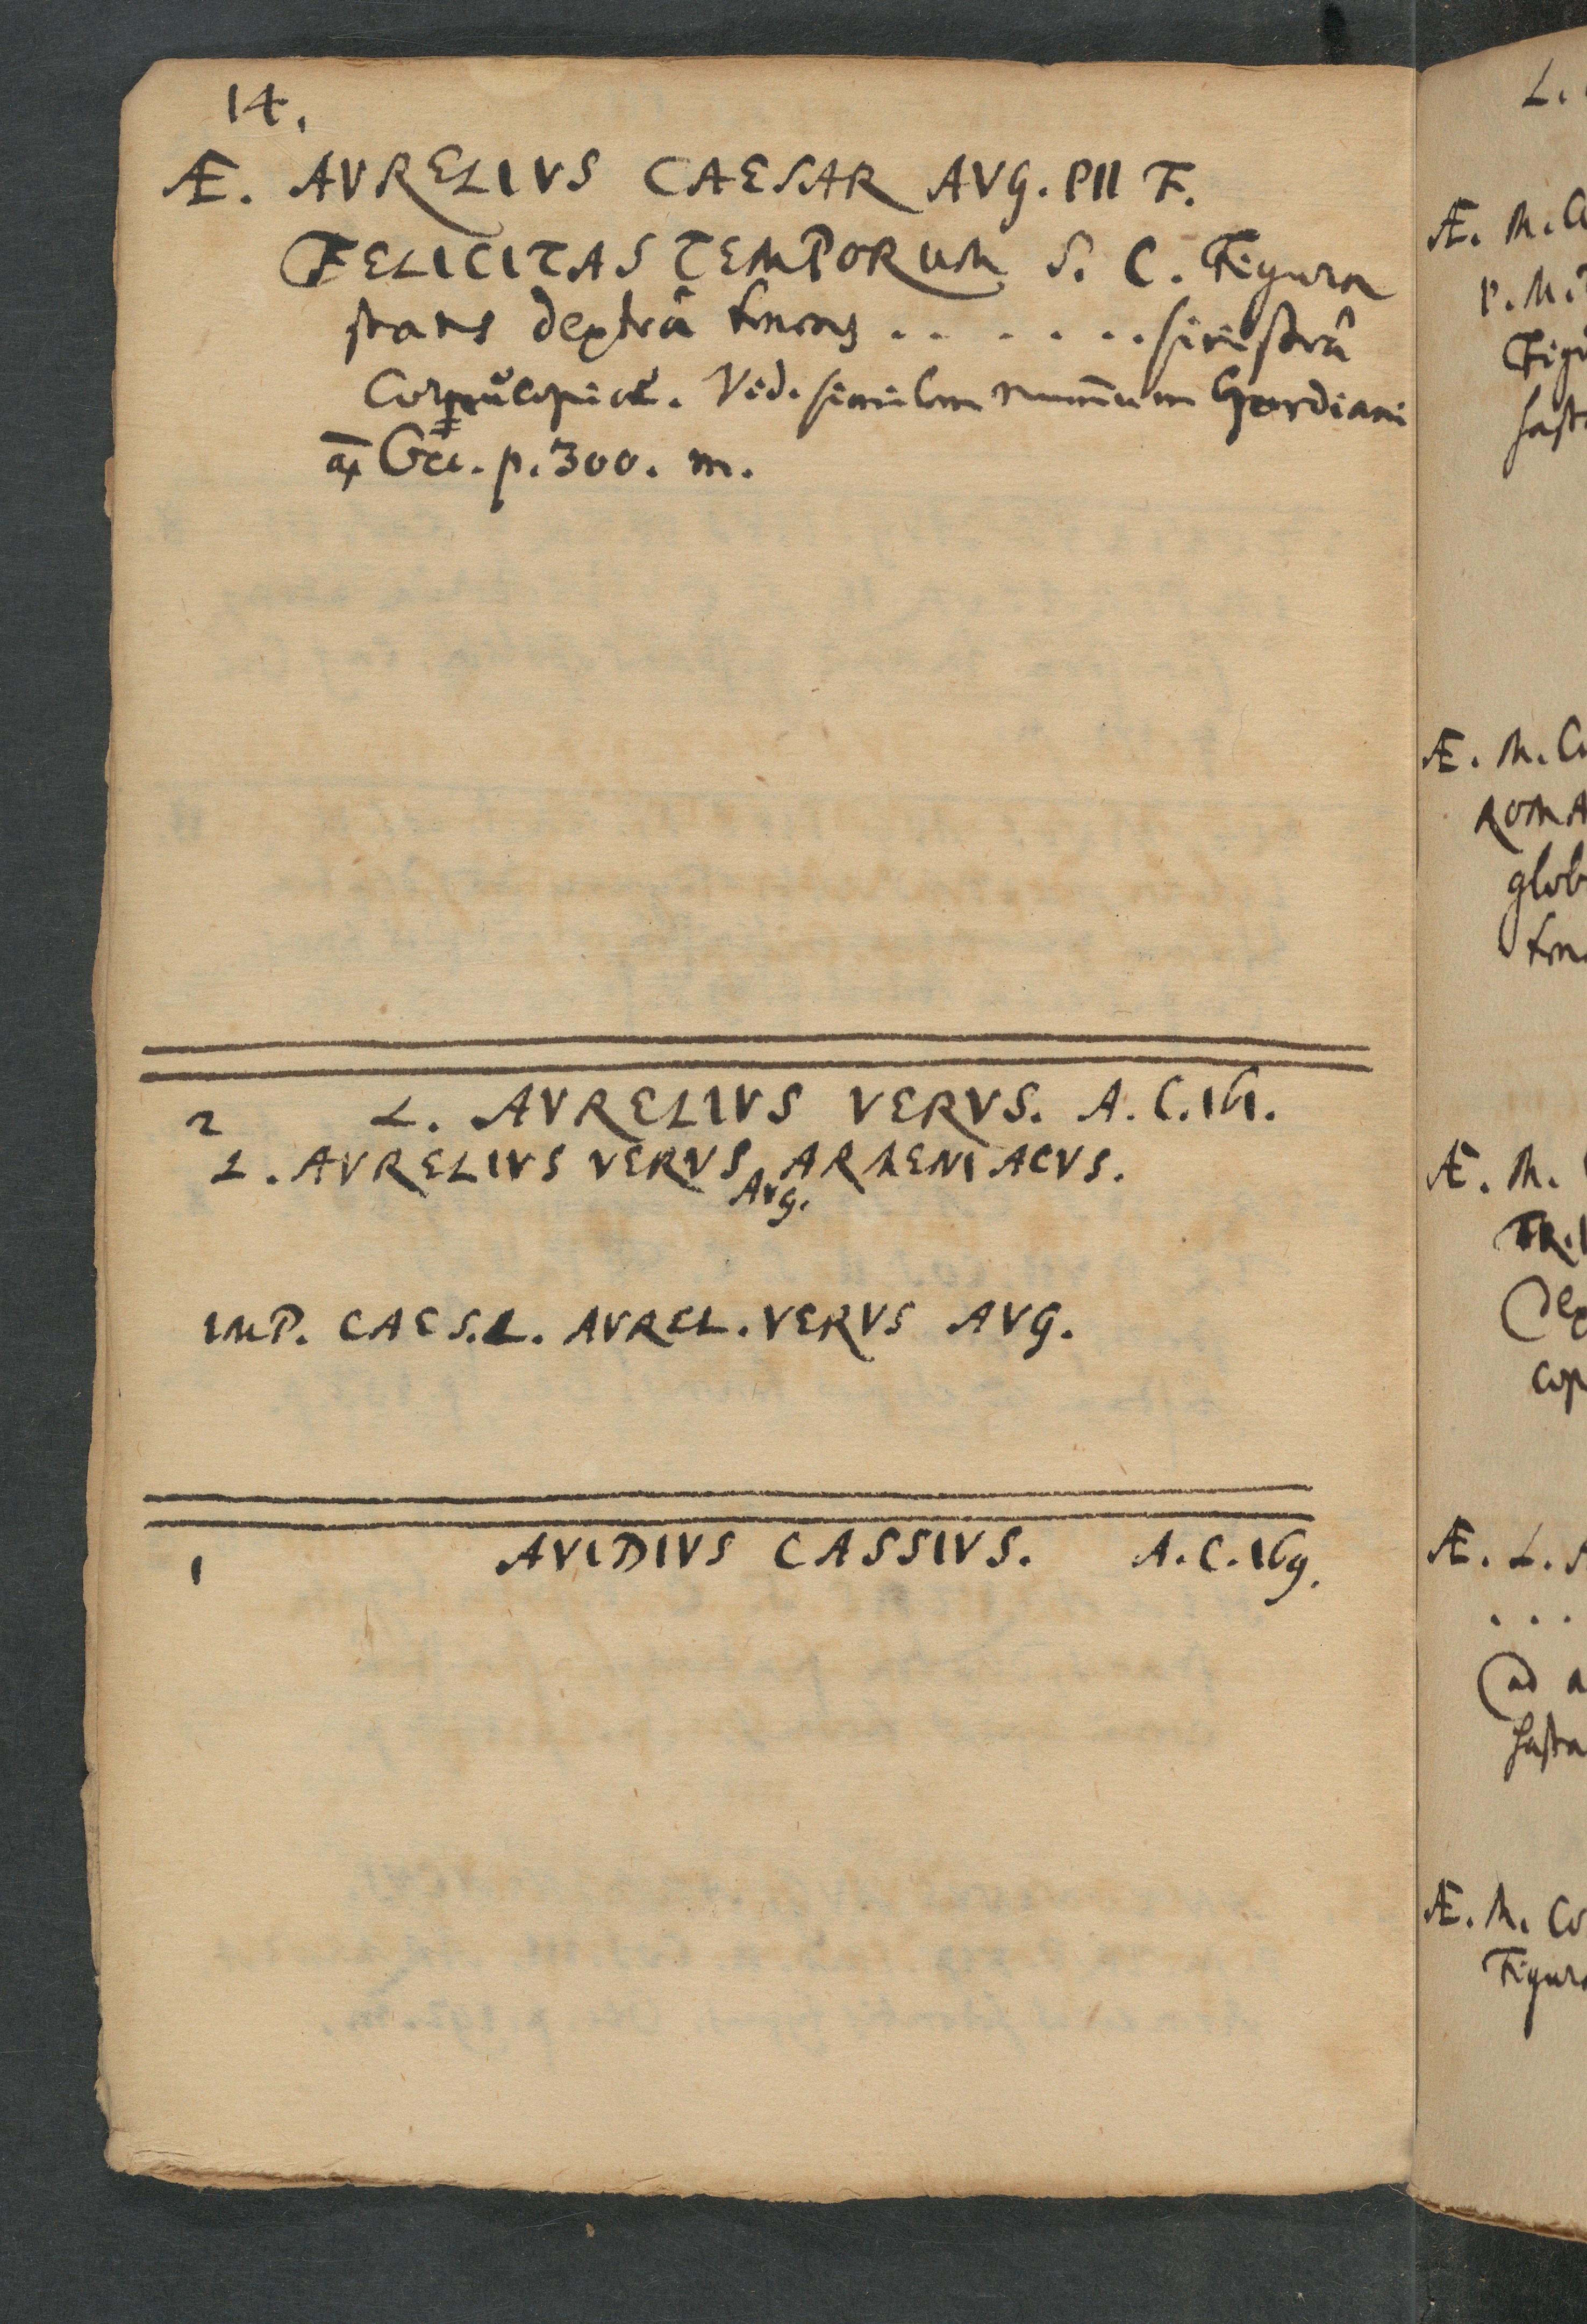 14.
Æ. AVRELIVS CAESAR AVG. PII F.
FELICITAS TEMPORUM S. C. Figura
stans dextrâ tenens . . . . . . sinistrâ
Cornucopiae. Vid. similem num̄um Gordiani
Occ. p. 300. m.
2 L. AVRELIVS VERVS. A. C. 161.
L. AVRELIVS VERVS AVG. ARMENIACVS.
IMP. CAES. L. AVREL. VERVS AVG.
1 AVIDIVS CASSIVS. A. C. 169.
L.
Æ. M.
P. M.
hast
Æ. M.
ROMA
glob
Æ. M.
TR.
cop
Æ. L.
. . .
ad a
hasta
Æ. M. Co
Figura